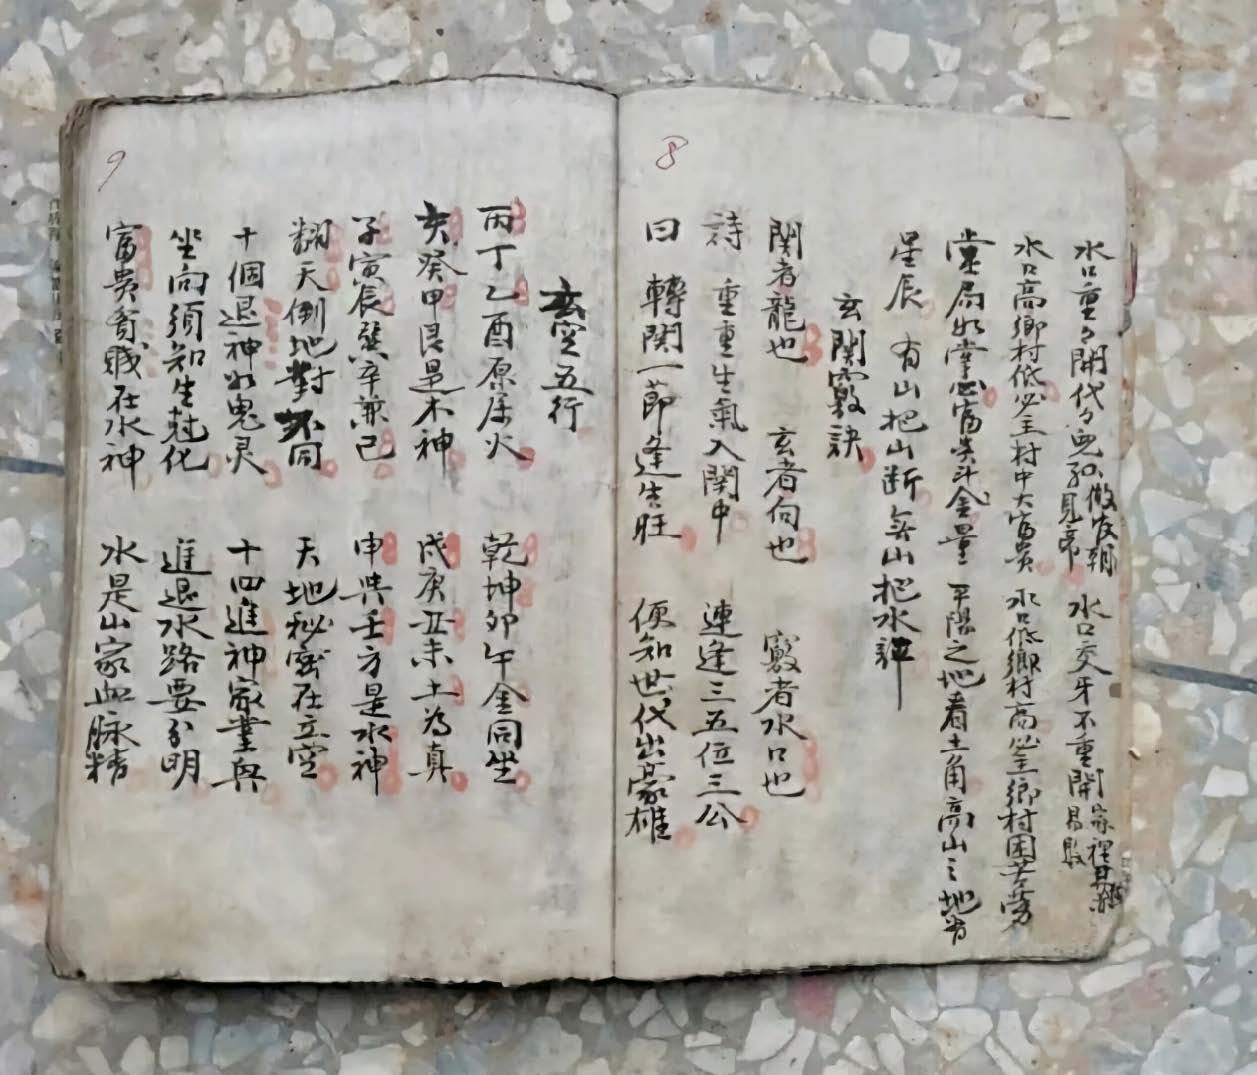 8
水口重々開代々
水口交牙不重開
水口高鄉村低必主村中大富貴 水口低鄉村高必主鄉村困苦勞
堂局如掌心富貴斗金量 平陽之地看土角高山之地看
星辰 有山把山斷無山把水評
玄関竅訣
関者龍也 玄者向也 竅者水口也
詩 重重生氣入関中 連逢三五位三公
曰 轉関一節逢生旺 便知世代出豪雄
9
玄空五行
丙丁乙酉原属火 乾坤卯午金同坐
亥癸甲艮是木神 戌庚丑未土為真
子寅辰巽辛兼己 申與壬方是水神
翻天倒地對不同 天地秘密在玄空
十個退神如鬼灵 十四進神家業興
坐向須知生尅化 進退水路要分明
富貴貧賤在水神 水是山家血脉精